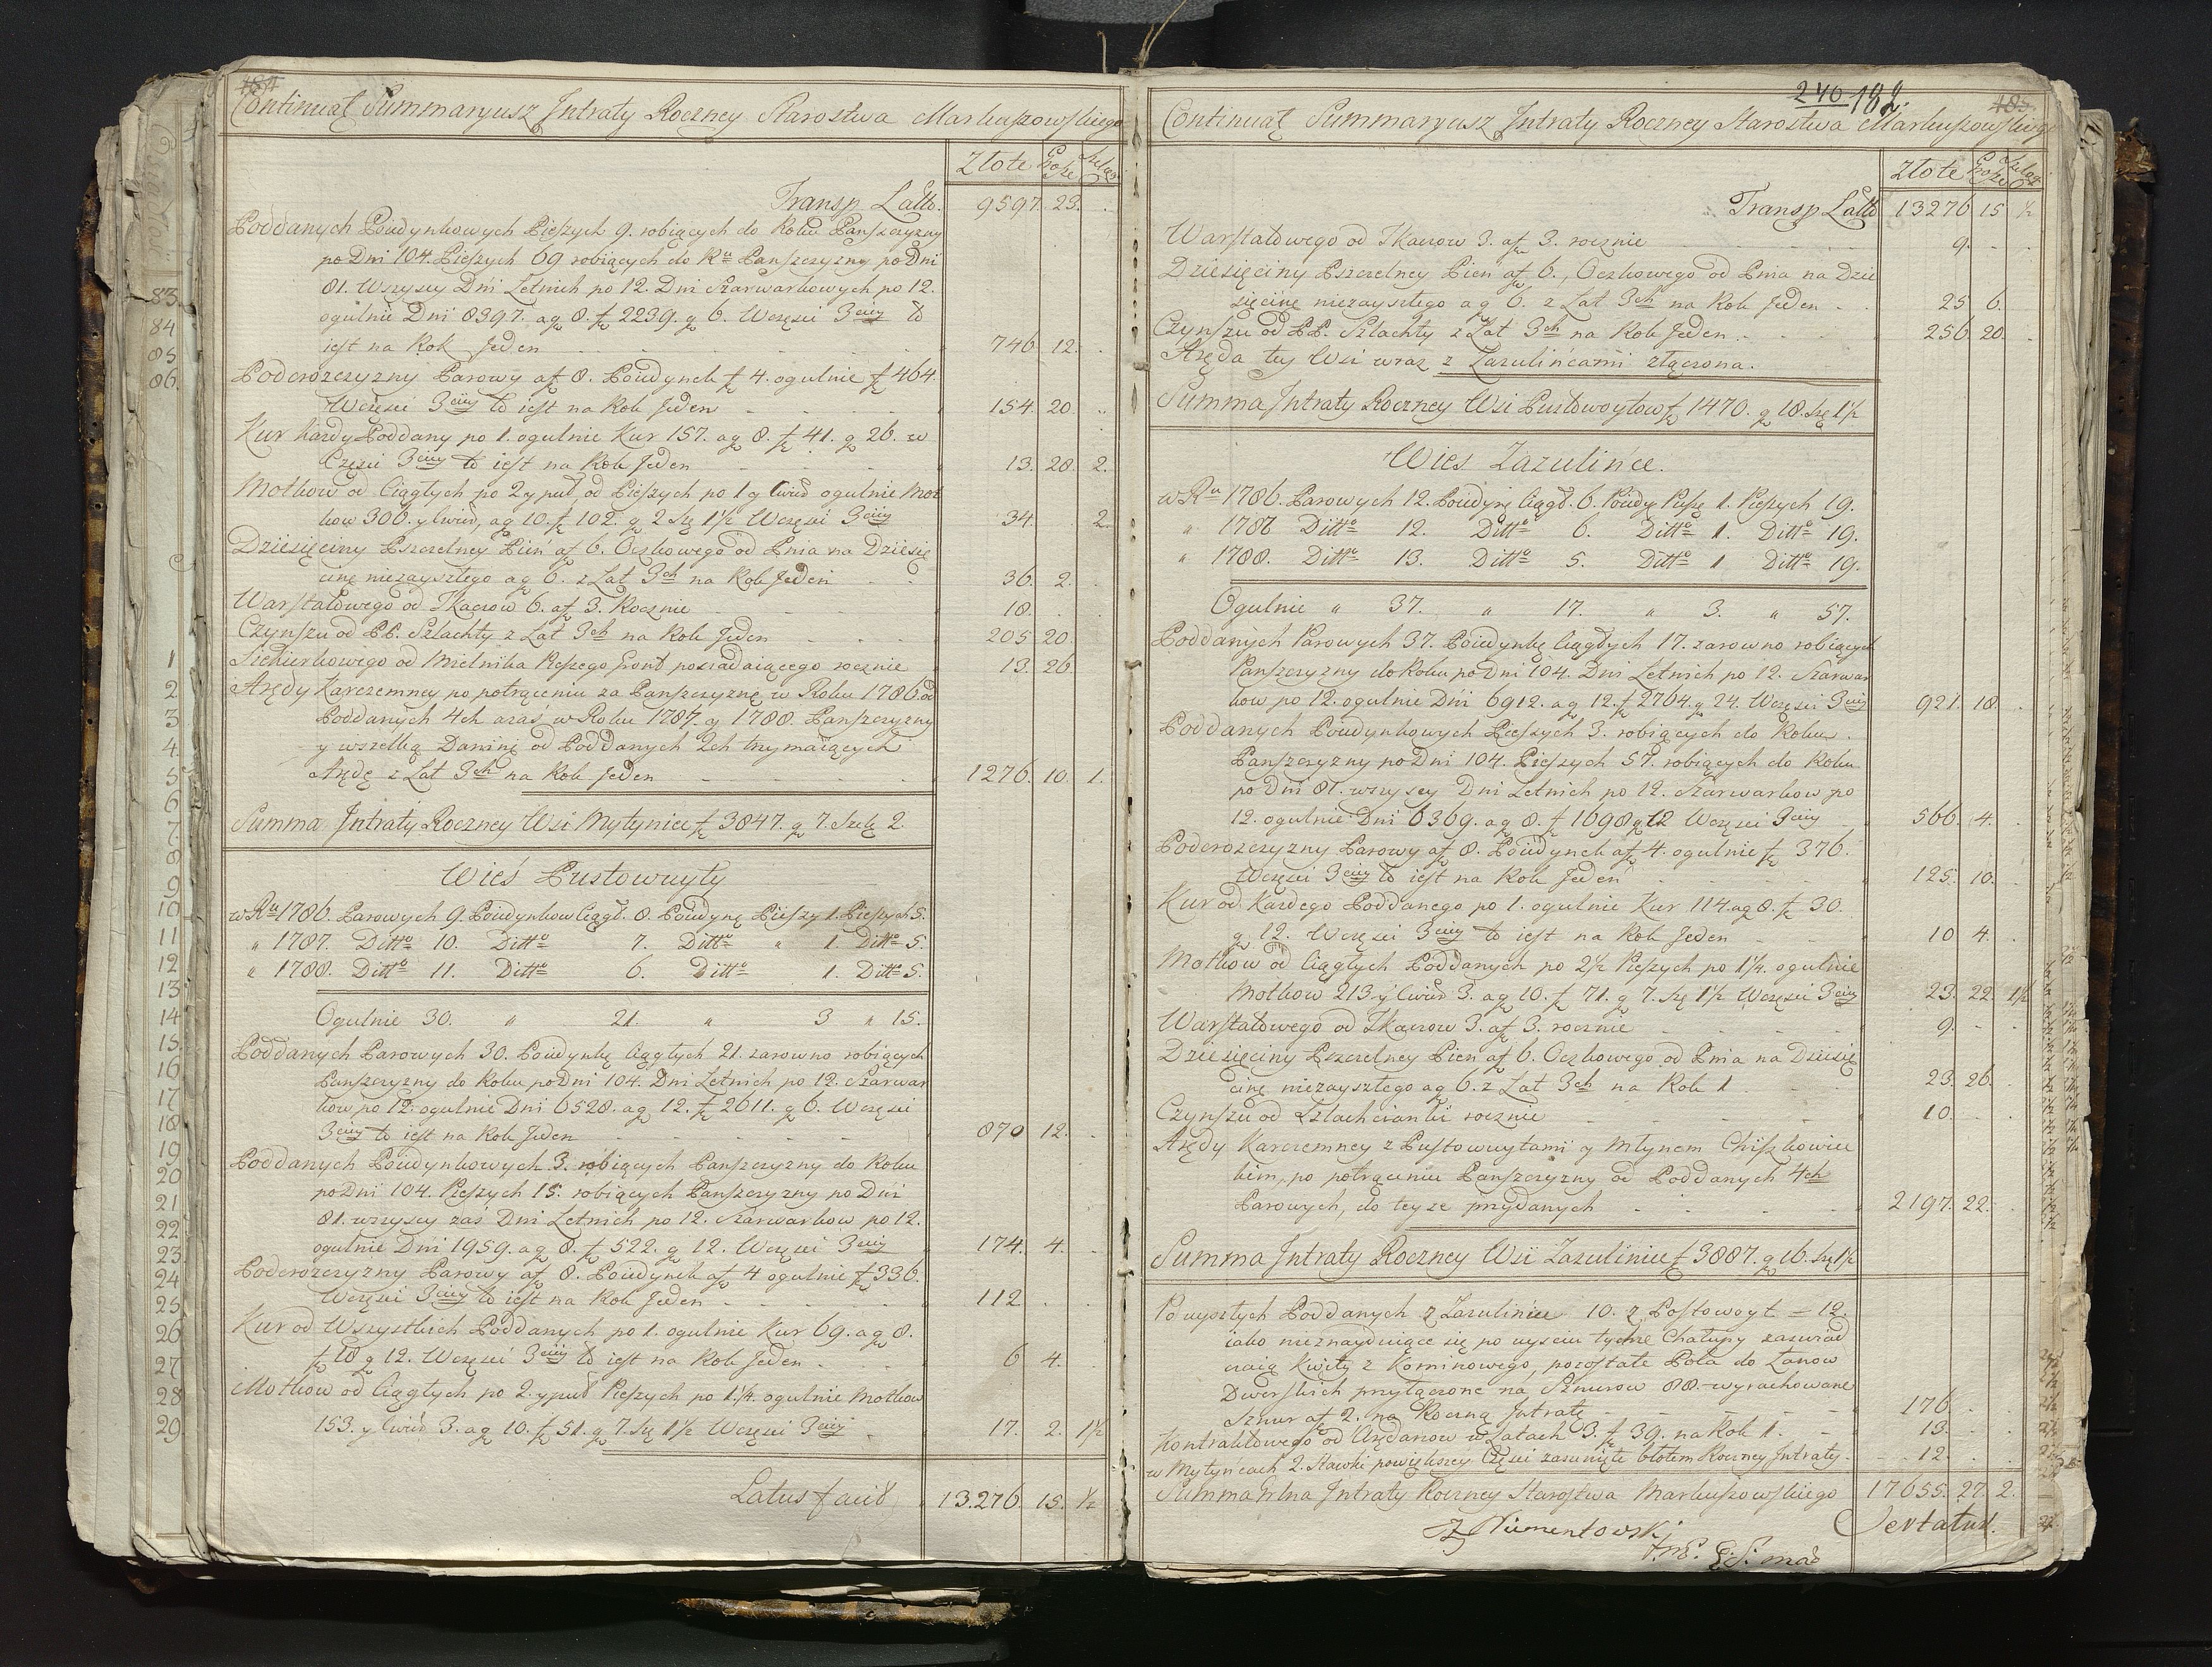 484
Continuat Summaryusz Intraty Roczney Starostwa Markuszowskiego
Złote Grosze Szeląg
Transp. Latto. 9597. 23.
Poddanych Poiudynkowych Pieszych 9. robiących do Roku Panszczyzny
po Dni 104. Pieszych 69 robiących do Ru Panszczyzny po Dni
81. Wszyscy Dni Letnich po 12. Dni Szarwarkowych po 12.
ogulnie Dni 8397. a g 8. f 2239. g 6. Wczęsci 3ciey to
iest na Rok Jeden 746 12.
Podorozczyzny Parowy a f 8. Poiudynek f 4. ogulnie f 464.
Wczęsci 3ciey to iest na Rok Jeden 154. 20
Kur każdy Poddany po 1. ogulnie Kur 157. a g 8. f 41. g 26. w
Częsci 3ciey to iest na Rok Jeden 13. 28. 2.
Motkow od Ciągłych po 2 y puł, od Pieszych po 1 y cwierć ogulnie Mot
kow 306. y cwierć, a g 10. f 102. g 2 Szę 1½ Wczęsci 3ciey 34. 2.
Dziesięciny Pszczelney Pień a f 6. Oczkowego od Pnia na Dziesię
cinę niezayszłego a g 6. z Lat 3ch na Rok Jeden 36. 2.
Warstatowego od Tkaczow 6. a f 3. Rocznie 18.
Czynszu od PP. Szlachty z Lat 3ch na Rok Jeden 205 20
Siekierkowego od Mielnika Pieszego Grunt posiadaiącego rocznie 13. 26
Arędy Karczemney po potrąceniu za Panszczyznę w Roku 1786. od
Poddanych 4ch a zaś w Roku 1787. y 1788. Panszczyzny
y wszelką Daninę od Poddanych 2ch trzymaiących
Arędę z Lat 3ch na Rok Jeden 1276. 10. 1.
Summa Intraty Roczney Wsi Mytyniec f 3847. g 7. Szelą 2.
Wieś Pustowuyty
w Ru 1786. Parowych 9. Poiudynkow Ciągł. 8. Poiudynę Pieszy 1. Pieszych 5.
" 1787. Ditto 10. Ditto 7. Ditto " 1. Ditto 5.
" 1788. Ditto 11. Ditto 6. Ditto 1. Ditto 5.
Ogulnie 30. " 21. " 3 " 15.
Poddanych Parowych 30. Poiudynkę Ciągłych 21. zarowno robiących
Panszczyzny do Roku po Dni 104. Dni Letnich po 12. Szarwar
kow po 12. ogulnie Dni 6528. a g 12. f 2611. g 6. Wczęsci
3ciey to iest na Rok Jeden 870 12.
Poddanych Poiudynkowych 3. robiących Panszczyzny do Roku
po Dni 104. Pieszych 15. robiących Panszczyzny po Dni
81. wszyscy zaś Dni Letnich po 12. Szarwarkow po 12.
ogulnie Dni 1959. a g 8. f 522. g 12. Wczęsci 3ciey 174. 4.
Podorozczyzny Parowy a f 8. Poiudynek a f 4 ogulnie f 336.
Wczęsci 3ciey to iest na Rok Jeden 112
Kur od Wszystkich Poddanych po 1. ogulnie Kur 69. a g 8.
f 18 g 12. Wczęsci 3ciey to iest na Rok Jeden 6 4.
Motkow od Ciągłych po 2. y puł Pieszych po 1¼. ogulnie Motkow
153. y cwierć 3. a g 10. f 51. g 7. Szę 1½ Wczęsci 3ciey 17. 2. 1½
Latus facit 13.276. 15. ½
240 182. 485
Continuat Summaryusz Intraty Roczney Starostwa Markuszowskiego
Złote Grosze Szeląg
Transp Latto 13276 15 ½
Warstatowego od Tkaczow 3. a f 3. rocznie 9.
Dziesięciny Pszczelney Pień a f 6., Oczkowego od Pnia na Dzie
sięcinę niezayszłego a g 6. z Lat 3ch na Rok Jeden 25 6.
Czynszu od PP. Szlachty z Lat 3ch na Rok Jeden 256 20.
Aręda tey Wsi wraz z Zazulińcami złączona.
Summa Intraty Roczney Wsi Pustowoytow f 1470. g 18. Szę 1½
Wies Zazulińce.
w Ru 1786. Parowych 12. Poiudynę Ciągł. 6. Poiudy Pieszę 1. Pieszych 19.
" 1787 Ditto 12. Ditto 6. Ditto 1. Ditto 19.
" 1788. Ditto 13. Ditto 5. Ditto 1 Ditto 19.
Ogulnie " 37. " 17. " 3. " 57.
Poddanych Parowych 37. Poiudynkę Ciągłych 17. zarowno robiących
Panszczyzny do Roku po Dni 104. Dni Letnich po 12. Szarwar
kow po 12. ogulnie Dni 6912. a g 12. f 2764. g 24. Wczęsci 3ciey 921. 18.
Poddanych Poiudynkowych Pieszych 3. robiących do Roku
Panszczyzny po Dni 104. Pieszych 57. robiących do Roku
po Dni 81. wszyscy Dni Letnich po 12. Szarwarkow po
12. ogulnie Dni 6369. a g 8. f 1698 g 12 Wczęsci 3ciey 566. 4.
Podorozczyzny Parowy a f 8. Poiudynek a f 4. ogulnie f 376.
Wczęsci 3ciey to iest na Rok Jeden 125. 10.
Kur od Kazdego Poddanego po 1. ogulnie Kur 114. a g 8. f 30.
g 12. Wczęsci 3ciey to iest na Rok Jeden 10 4.
Motkow od Ciągłych Poddanych po 2½ Pieszych po 1¼. ogulnie
Motkow 213 y cwierć 3. a g 10. f 71. g 7. Szę 1½ Wczęsci 3ciey 23. 22. 1½
Warstatowego od Tkaczow 3. a f 3. rocznie 9.
Dziesięciny Pszczelney Pień a f 6. Oczkowego od Pnia na Dziesię
cinę niezayszłego a g 6. z Lat 3ch na Rok 1 23. 26.
Czynszu od Szlachcianki rocznie 10.
Arędy Karczemney z Pustowuytami y Młynem Chiszkowiec
kim, po potrąceniu Panszczyzny od Poddanych 4ch
Parowych, do teyże przydanych 2197. 22.
Summa Intraty Roczney Wsi Zazuliniec f 3887. g 16. Szę 1½
Po uyszłych Poddanych z Zazuliniec 10. z Postowoyt = 12.
iako nieznayduiące się po uysciu tychze Chałupy zaswiad
czaią Kwity z Kominowego, pozostałe Pola do Łanow
Dworskich przyłączone na Sznurow 88. wyrachowane
Sznur a f 2. na Roczną Intratę 176.
Kontraktowego od Arędarzow w Latach 3. f 39. na Rok 1. 13.
w Mytyńcach 2. Stawki powiększey Częsci zasunięte błotem Roczney Intraty 12.
Summa Grlna Intraty Roczney Starostwa Markuszowskiego 17655. 27 2.
Niementowski